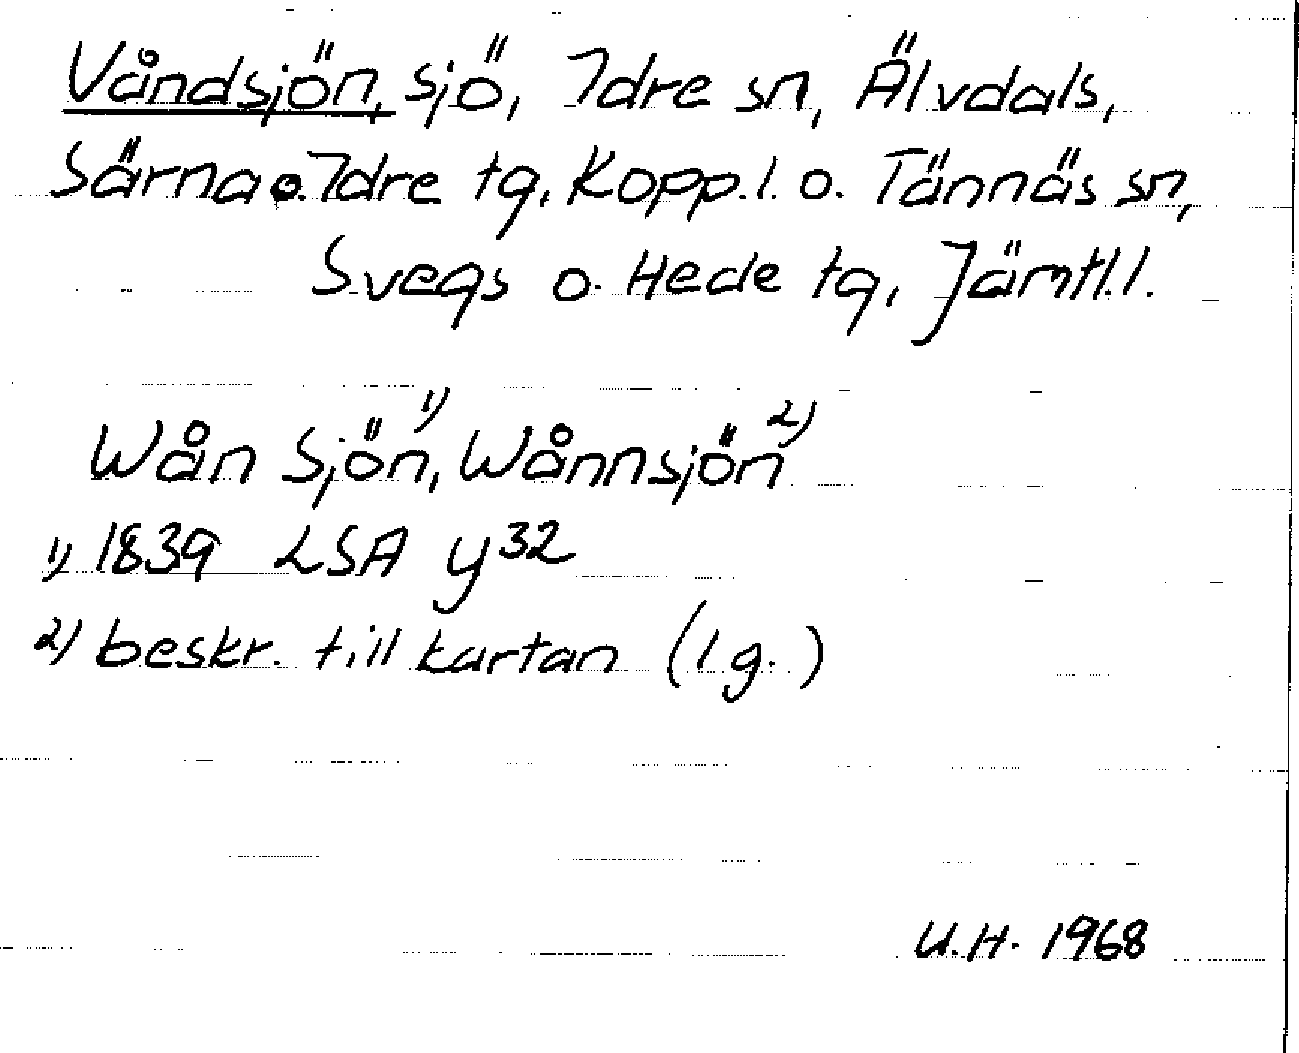 Våndsjön, sjö, Idre sn, Älvdals,
Särna o. Idre tg, Kopp.l. o. Tännäs sn,
Svegs o. Hede tg, Jämtl.l.
Wån Sjön,1) Wånnsjön2)
1) 1839 LSA y32
2) beskr. till kartan (l.g.)
U.H. 1968